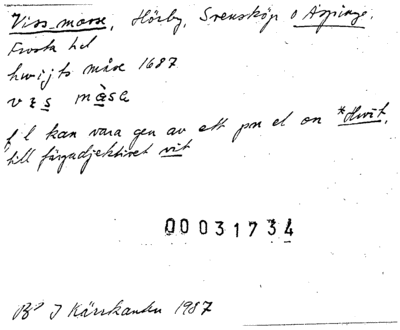 Viss-mosse, Hörby, Svensköp o Äspinge.
Frosta hd
hwijts måse 1687
vɪs màsa
fl kan vara gen av ett pn el on *Hvit,
till färgadjektivet vit
00031734
I Kärrkanku 1987